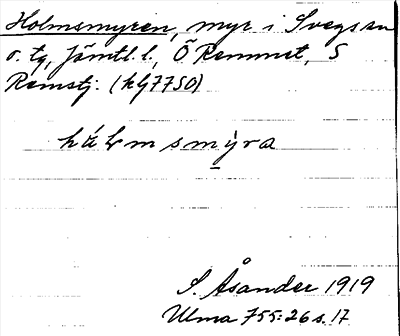 Holmsmyren, myr i Svegs sn
o. tg, Jämtl. l., Ö Remmet, S
Remstj. (hG7750)
håLmsmy̱ra
S. Åsander 1919
Ulma 755:26 s. 17